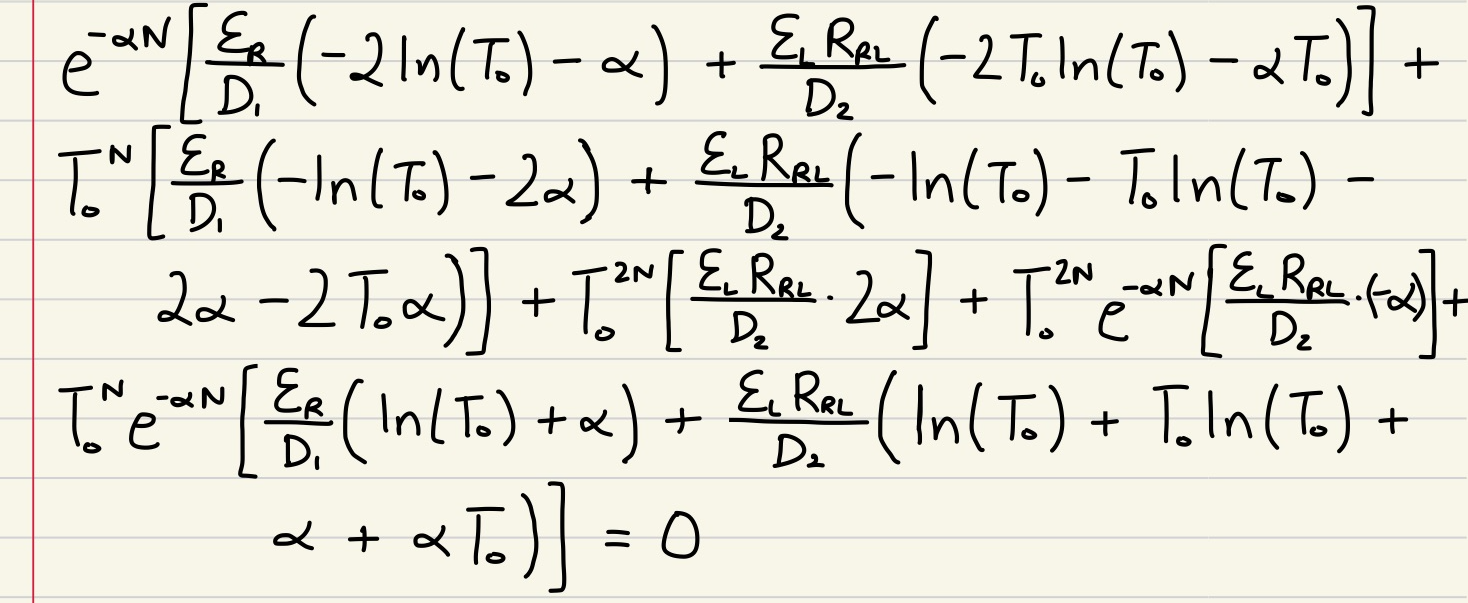 e^{-αN} [ \frac{ε_R}{D_1} (-2 ln(T_0) - α) + \frac{ε_L R_{RL}}{D_2} (-2T_0 ln(T_0) - αT_0) ] +
T_0^N [ \frac{ε_R}{D_1} (-ln(T_0) - 2α) + \frac{ε_L R_{RL}}{D_2} (-ln(T_0) - T_0 ln(T_0) -
2α - 2T_0 α) ] + T_0^{2N} [ \frac{ε_L R_{RL}}{D_2} · 2α ] + T_0^{2N} e^{-αN} [ \frac{ε_L R_{RL}}{D_2} · (-α) ] +
T_0^N e^{-αN} [ \frac{ε_R}{D_1} (ln(T_0) + α) + \frac{ε_L R_{RL}}{D_2} (ln(T_0) + T_0 ln(T_0) +
α + αT_0) ] = 0